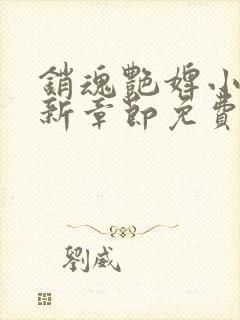 銷魂艷婢小
新章節免費
劉威